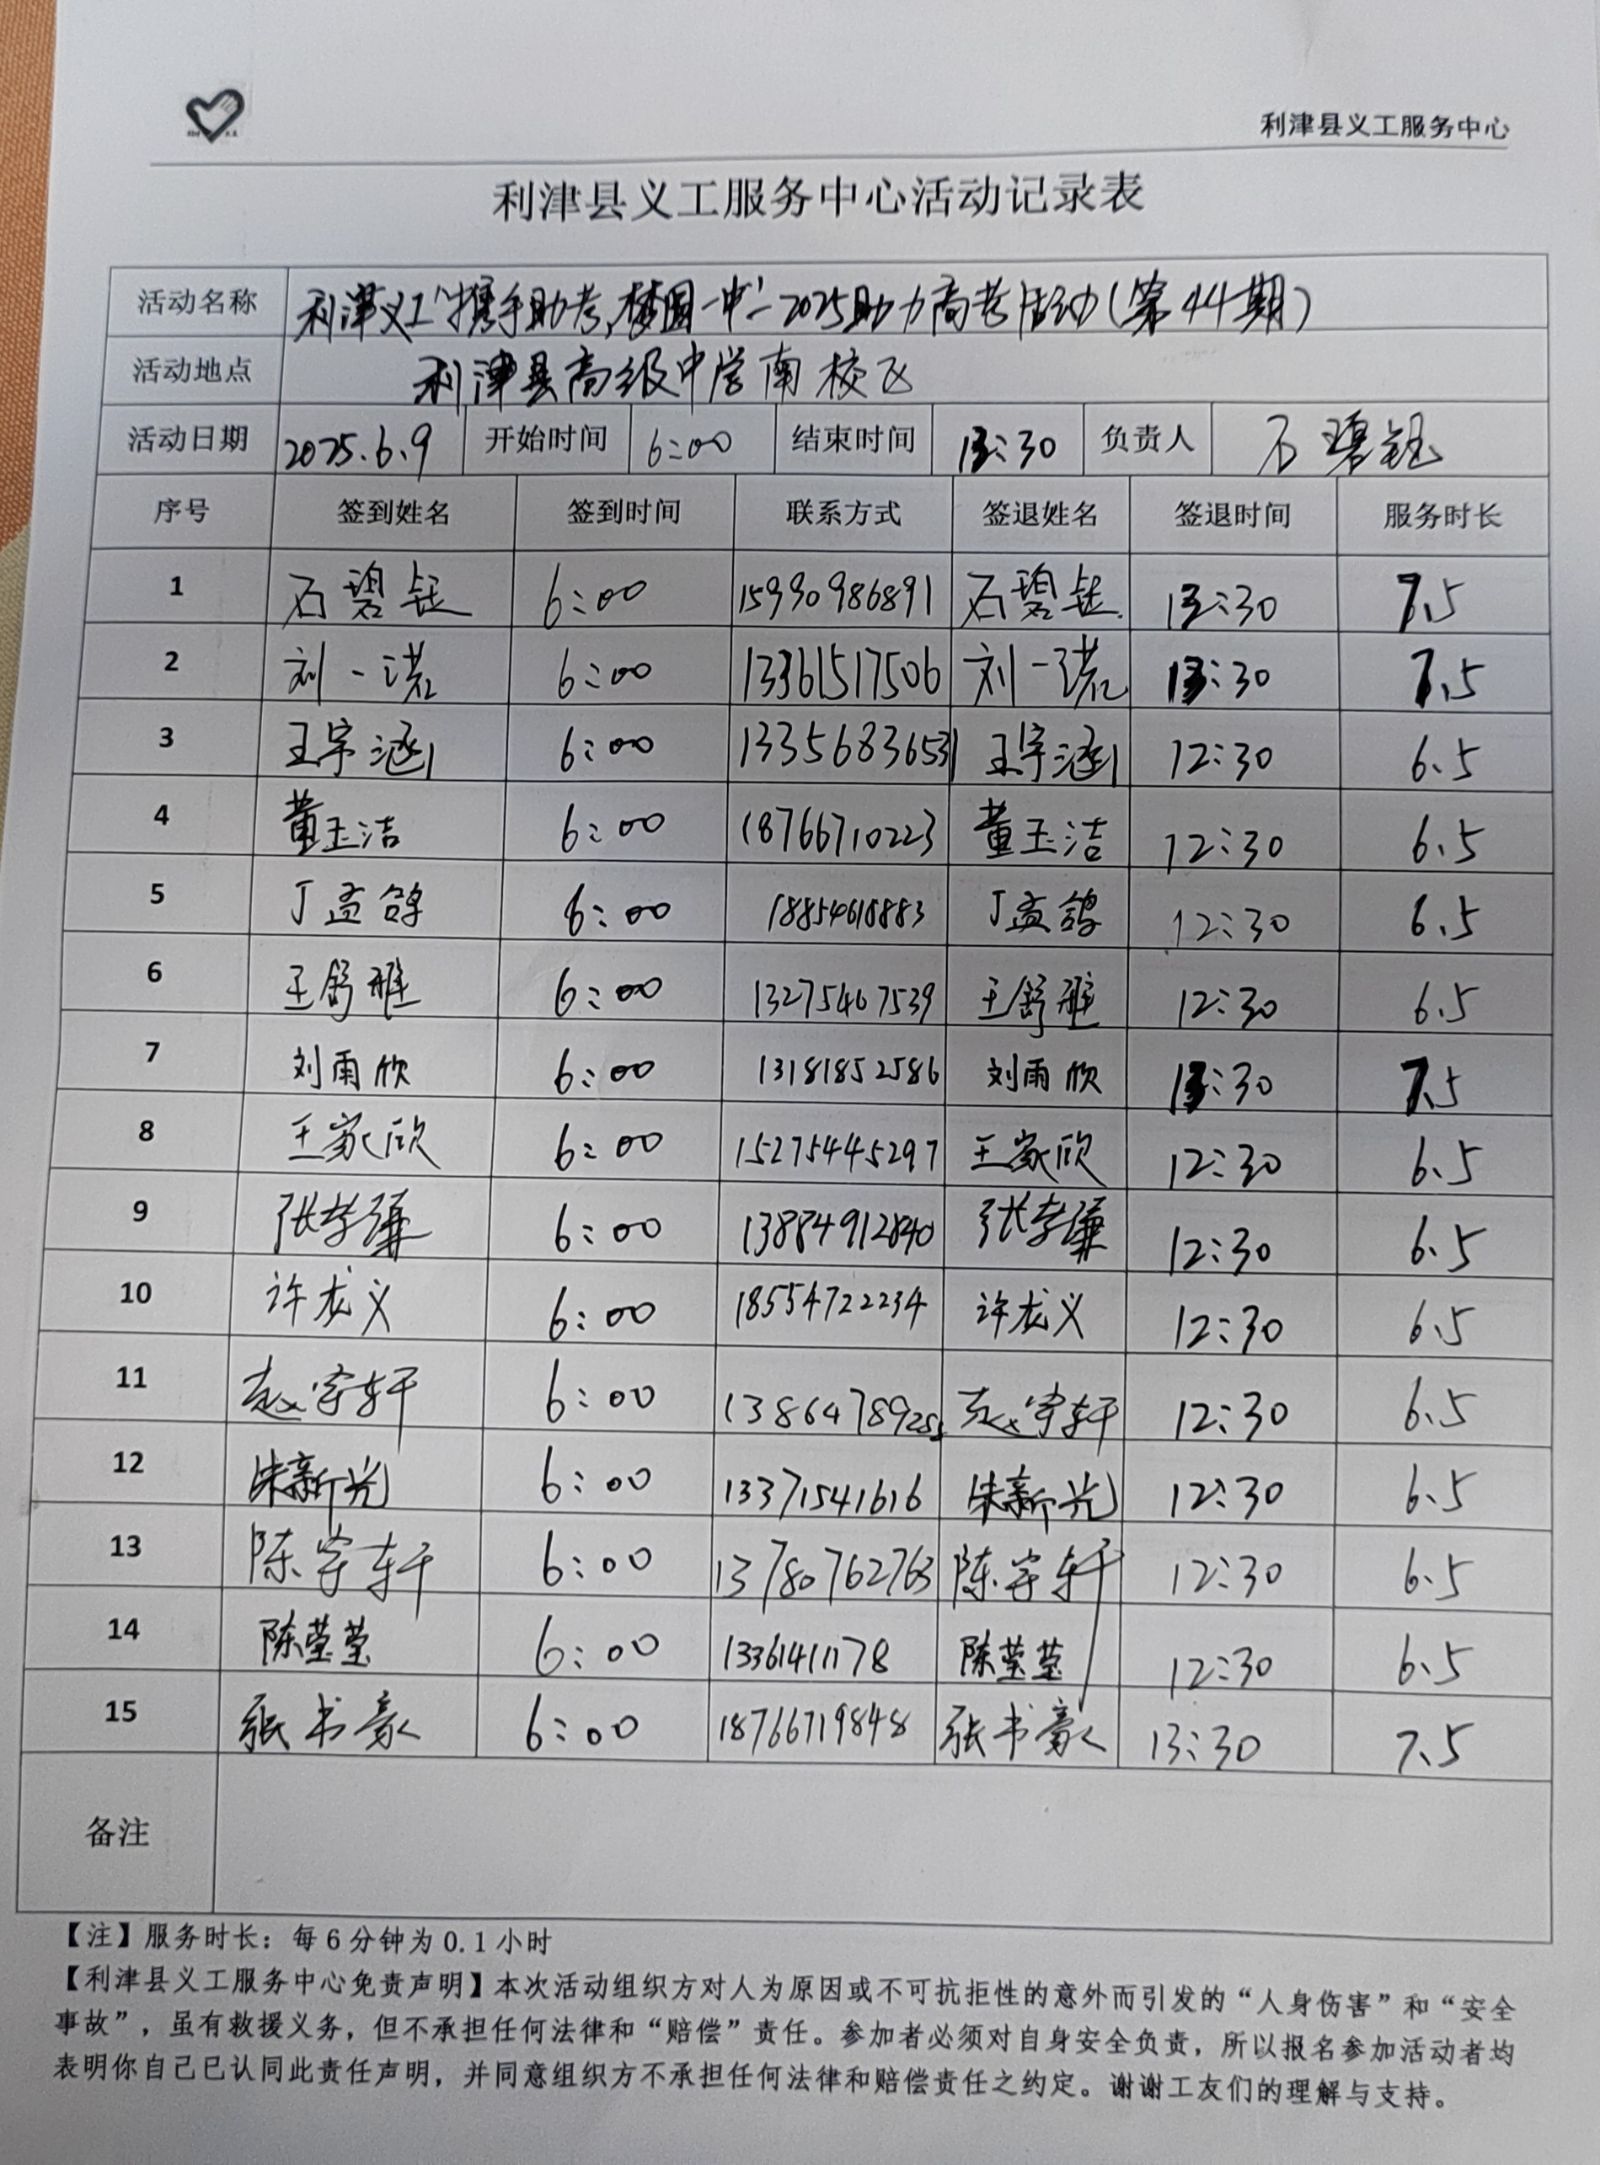 利津县义工服务中心
利津县义工服务中心活动记录表
活动名称 利津义工"携手助考,梦圆一中"—2025助力高考活动(第44期)
活动地点 利津县高级中学南校区
活动日期 2025.6.9 开始时间 6:00 结束时间 13:30 负责人 石碧钰
序号 签到姓名 签到时间 联系方式 签退姓名 签退时间 服务时长
1 石碧钰 6:00 15990986891 石碧钰 13:30 7.5
2 刘一诺 6:00 13361517506 刘一诺 13:30 7.5
3 王宇涵 6:00 13356836531 王宇涵 12:30 6.5
4 董玉洁 6:00 18766710223 董玉洁 12:30 6.5
5 丁孟鸽 6:00 18854618883 丁孟鸽 12:30 6.5
6 王舒雅 6:00 13275467539 王舒雅 12:30 6.5
7 刘雨欣 6:00 13181852586 刘雨欣 13:30 7.5
8 王家欣 6:00 15275445297 王家欣 12:30 6.5
9 张孝谦 6:00 13884912840 张孝谦 12:30 6.5
10 许龙义 6:00 18554722234 许龙义 12:30 6.5
11 赵宇轩 6:00 赵宇轩 12:30 6.5
12 朱新光 6:00 13371541616 朱新光 12:30 6.5
13 陈宇轩 6:00 13780762763 陈宇轩 12:30 6.5
14 陈莹莹 6:00 13361411178 陈莹莹 12:30 6.5
15 张书豪 6:00 18766719848 张书豪 13:30 7.5
备注
【注】服务时长：每6分钟为0.1小时
【利津县义工服务中心免责声明】本次活动组织方对人为原因或不可抗拒性的意外而引发的“人身伤害”和“安全
事故”，虽有救援义务，但不承担任何法律和“赔偿”责任。参加者必须对自身安全负责，所以报名参加活动者均
表明你自己已认同此责任声明，并同意组织方不承担任何法律和赔偿责任之约定。谢谢工友们的理解与支持。